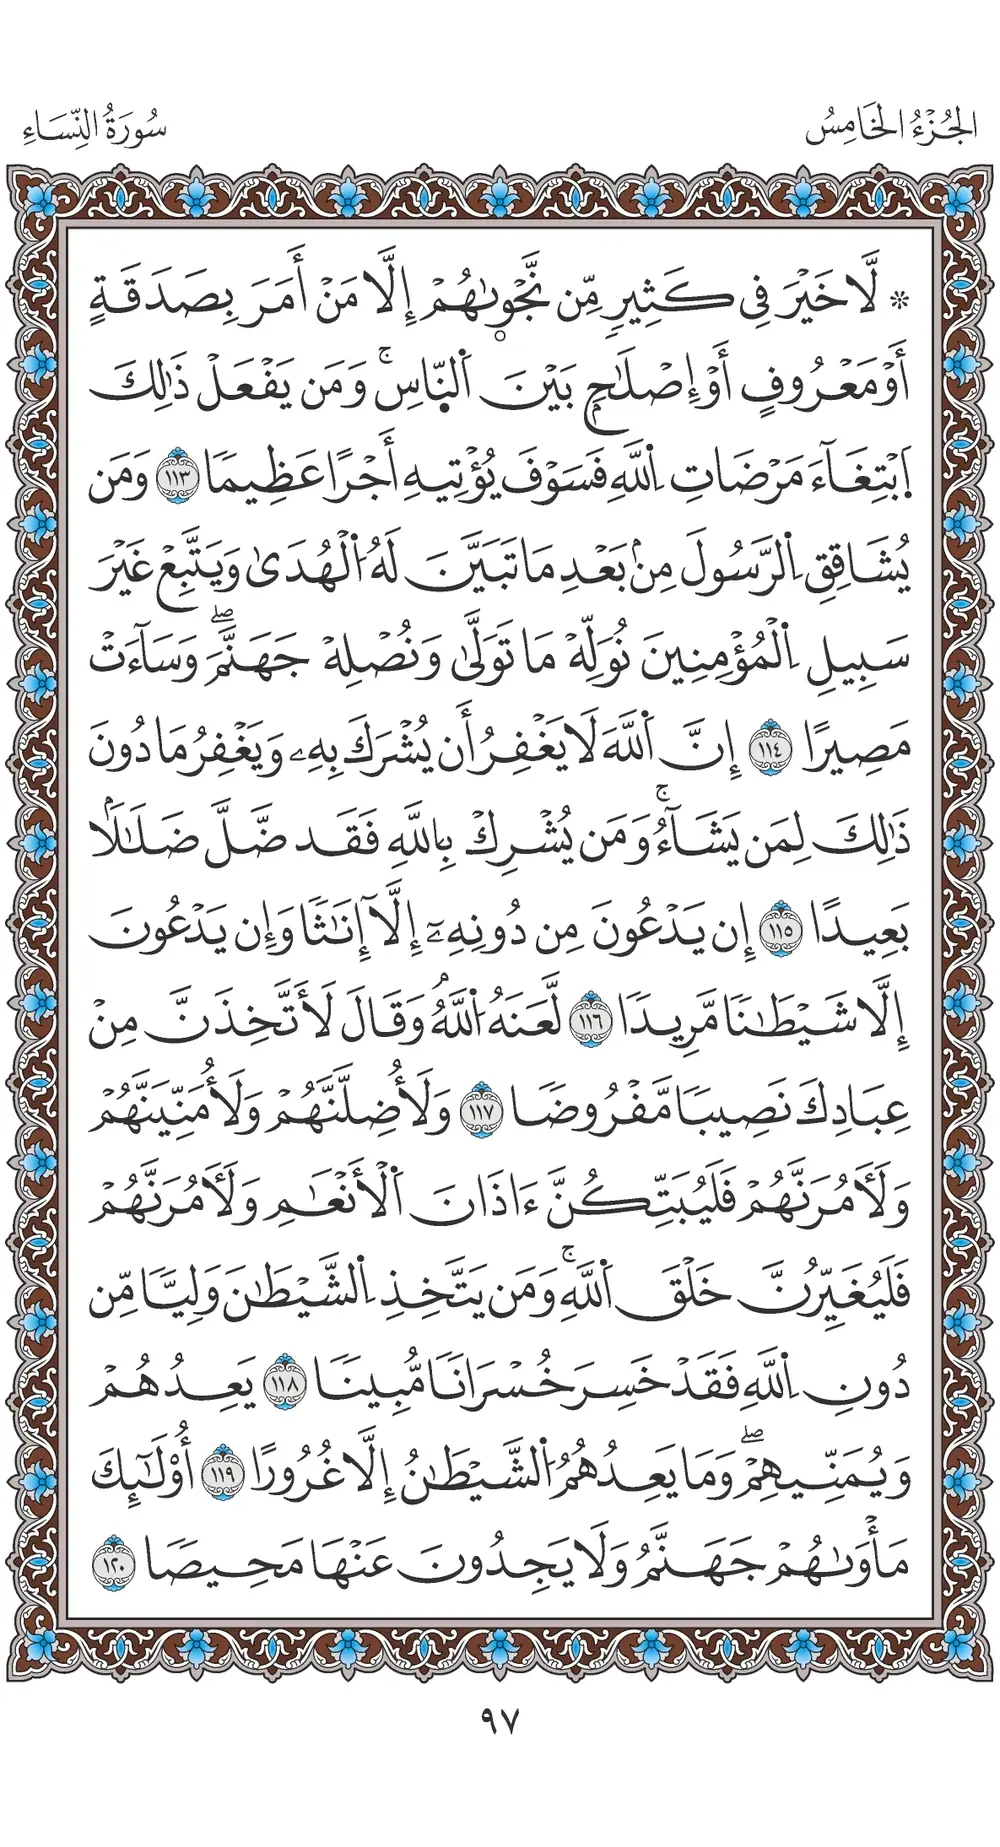 الجُزْءُ الخَامِسُ
سُورَةُ النِّسَاءِ
* لَّا خَيْرَ فِي كَثِيرٍ مِّن نَّجْوٜىٰهُمْ إِلَّا مَنْ أَمَرَ بِصَدَقَةٍ
أَوْ مَعْرُوفٍ أَوْ إِصْلَٰحٍۭ بَيْنَ اَ۬لنَّاسِۚ وَمَن يَفْعَلْ ذَٰلِكَ
اَ۪بْتِغَآءَ مَرْضَاتِ اِ۬للَّهِ فَسَوْفَ يُؤْتِيهِ أَجْرًا عَظِيمًا ١١٣ وَمَن
يُشَاقِقِ اِ۬لرَّسُولَ مِنۢ بَعْدِ مَا تَبَيَّنَ لَهُ اُ۬لْهُدَىٰ وَيَتَّبِعْ غَيْرَ
سَبِيلِ اِ۬لْمُؤْمِنِينَ نُوَلِّهْ مَا تَوَلَّىٰ وَنُصْلِهْ جَهَنَّمَۖ وَسَآءَتْ
مَصِيرًا ١١٤ إِنَّ اَ۬للَّهَ لَا يَغْفِرُ أَن يُشْرَكَ بِهِۦ وَيَغْفِرُ مَا دُونَ
ذَٰلِكَ لِمَن يَشَآءُۚ وَمَن يُشْرِكْ بِاللَّهِ فَقَد ضَّلَّ ضَلَٰلَۢا
بَعِيدًا ١١٥ إِن يَدْعُونَ مِن دُونِهِۦٓ إِلَّآ إِنَٰثًا وَإِن يَدْعُونَ
إِلَّا شَيْطَٰنًا مَّرِيدًا ١١٦ لَّعَنَهُ اُ۬للَّهُۘ وَقَالَ لَأَتَّخِذَنَّ مِنْ
عِبَادِكَ نَصِيبًا مَّفْرُوضًا ١١٧ وَلَأُضِلَّنَّهُمْ وَلَأُمَنِّيَنَّهُمْ
وَلَأٓمُرَنَّهُمْ فَلَيُبَتِّكُنَّ ءَاذَانَ اَ۬لْأَنْعَٰمِ وَلَأٓمُرَنَّهُمْ
فَلَيُغَيِّرُنَّ خَلْقَ اَ۬للَّهِۚ وَمَن يَتَّخِذِ اِ۬لشَّيْطَٰنَ وَلِيًّا مِّن
دُونِ اِ۬للَّهِ فَقَدْ خَسِرَ خُسْرَانًا مُّبِينًا ١١٨ يَعِدُهُمْ
وَيُمَنِّيهِمْۖ وَمَا يَعِدُهُمُ اُ۬لشَّيْطَٰنُ إِلَّا غُرُورًا ١١٩ أُوْلَٰٓئِكَ
مَأْوَىٰهُمْ جَهَنَّمُ وَلَا يَجِدُونَ عَنْهَا مَحِيصًا ١٢٠
٩٧